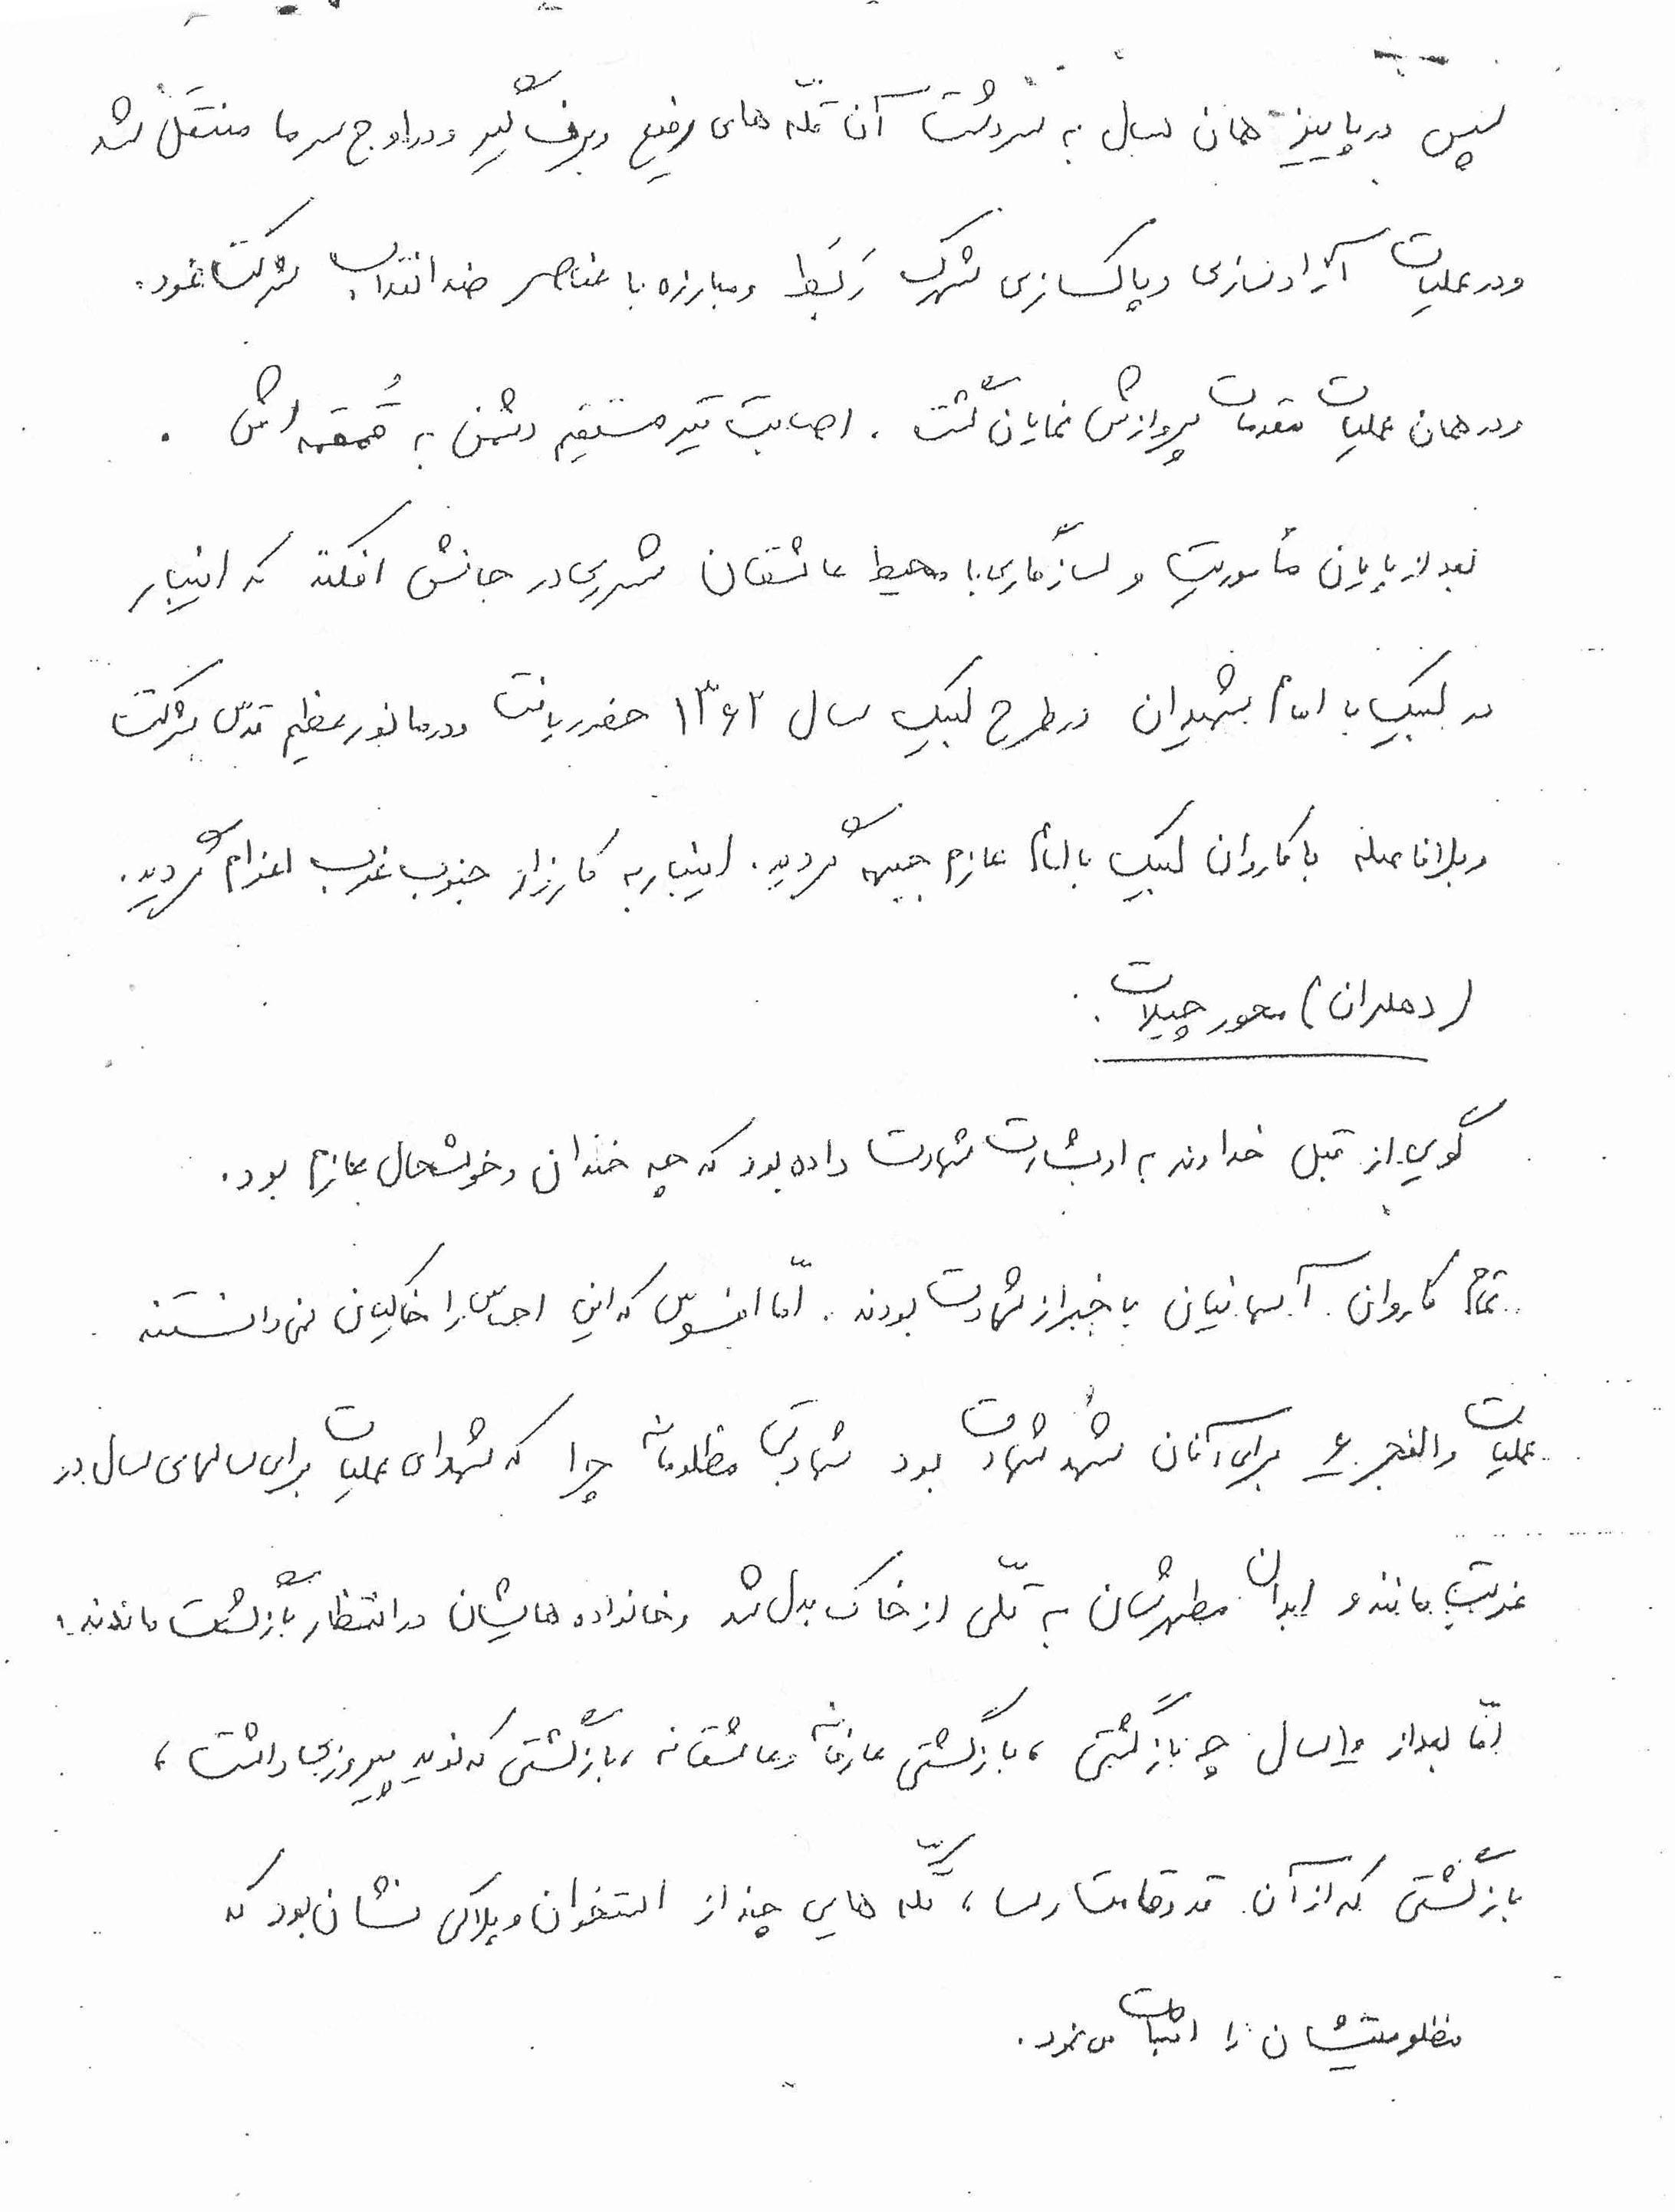 سپس در پاییز همان سال به سردشت آن قلّه های رفیع و برف گیر و در اوج سرما منتقل شد
و در عملیات آزادسازی و پاکسازی شهرک رَبَط و مبارزه با عناصر ضد انقلاب شرکت نمود.
و در همان عملیات مقدمات پروازش نمایان گشت. اصابت تیر مستقیم دشمن به قُمقمه اش.
بعد از پایان مأموریت و سازگاری با محیط عاشقان شوری در جانش افکند که اینبار
در لبیک با امام شهیدان در طرح لبیک سال ۱۳۶۲ حضور یافت و در مانور عظیم قدس شرکت
و بلافاصله با کاروان لبیک با امام عازم جبهه گردید. اینبار به کارزار جنوب غرب اعزام گردید.
(دهلران) محور چیلات:
گویی از قبل خداوند به او بشارت شهادت داده بود که چه خندان و خوشحال عازم بود.
تمام کاروان آسمانیان با خبر از شهادت بودند. امّا افسوس که این احساس را خاکیان نمی دانستند.
عملیات والفجر ۶ برای آنان شهد شهادت بود شهادتی مظلومانه چرا که شهدای عملیات برای سالهای سال در
غربت ماندند و ابدان مطهرشان به تلّی از خاک بدل شد و خانواده هایشان در انتظار بازگشت ماندند.
امّا بعد از ۱۰ سال چه بازگشتی، بازگشتی عارفانه و عاشقانه، بازگشتی که نوید پیروزی داشت،
بازگشتی که از آن قد و قامت رسا، تکّه هایی چند از استخوان و پلاکی نشان بود که
مظلومیتشان را اثبات می نمود.